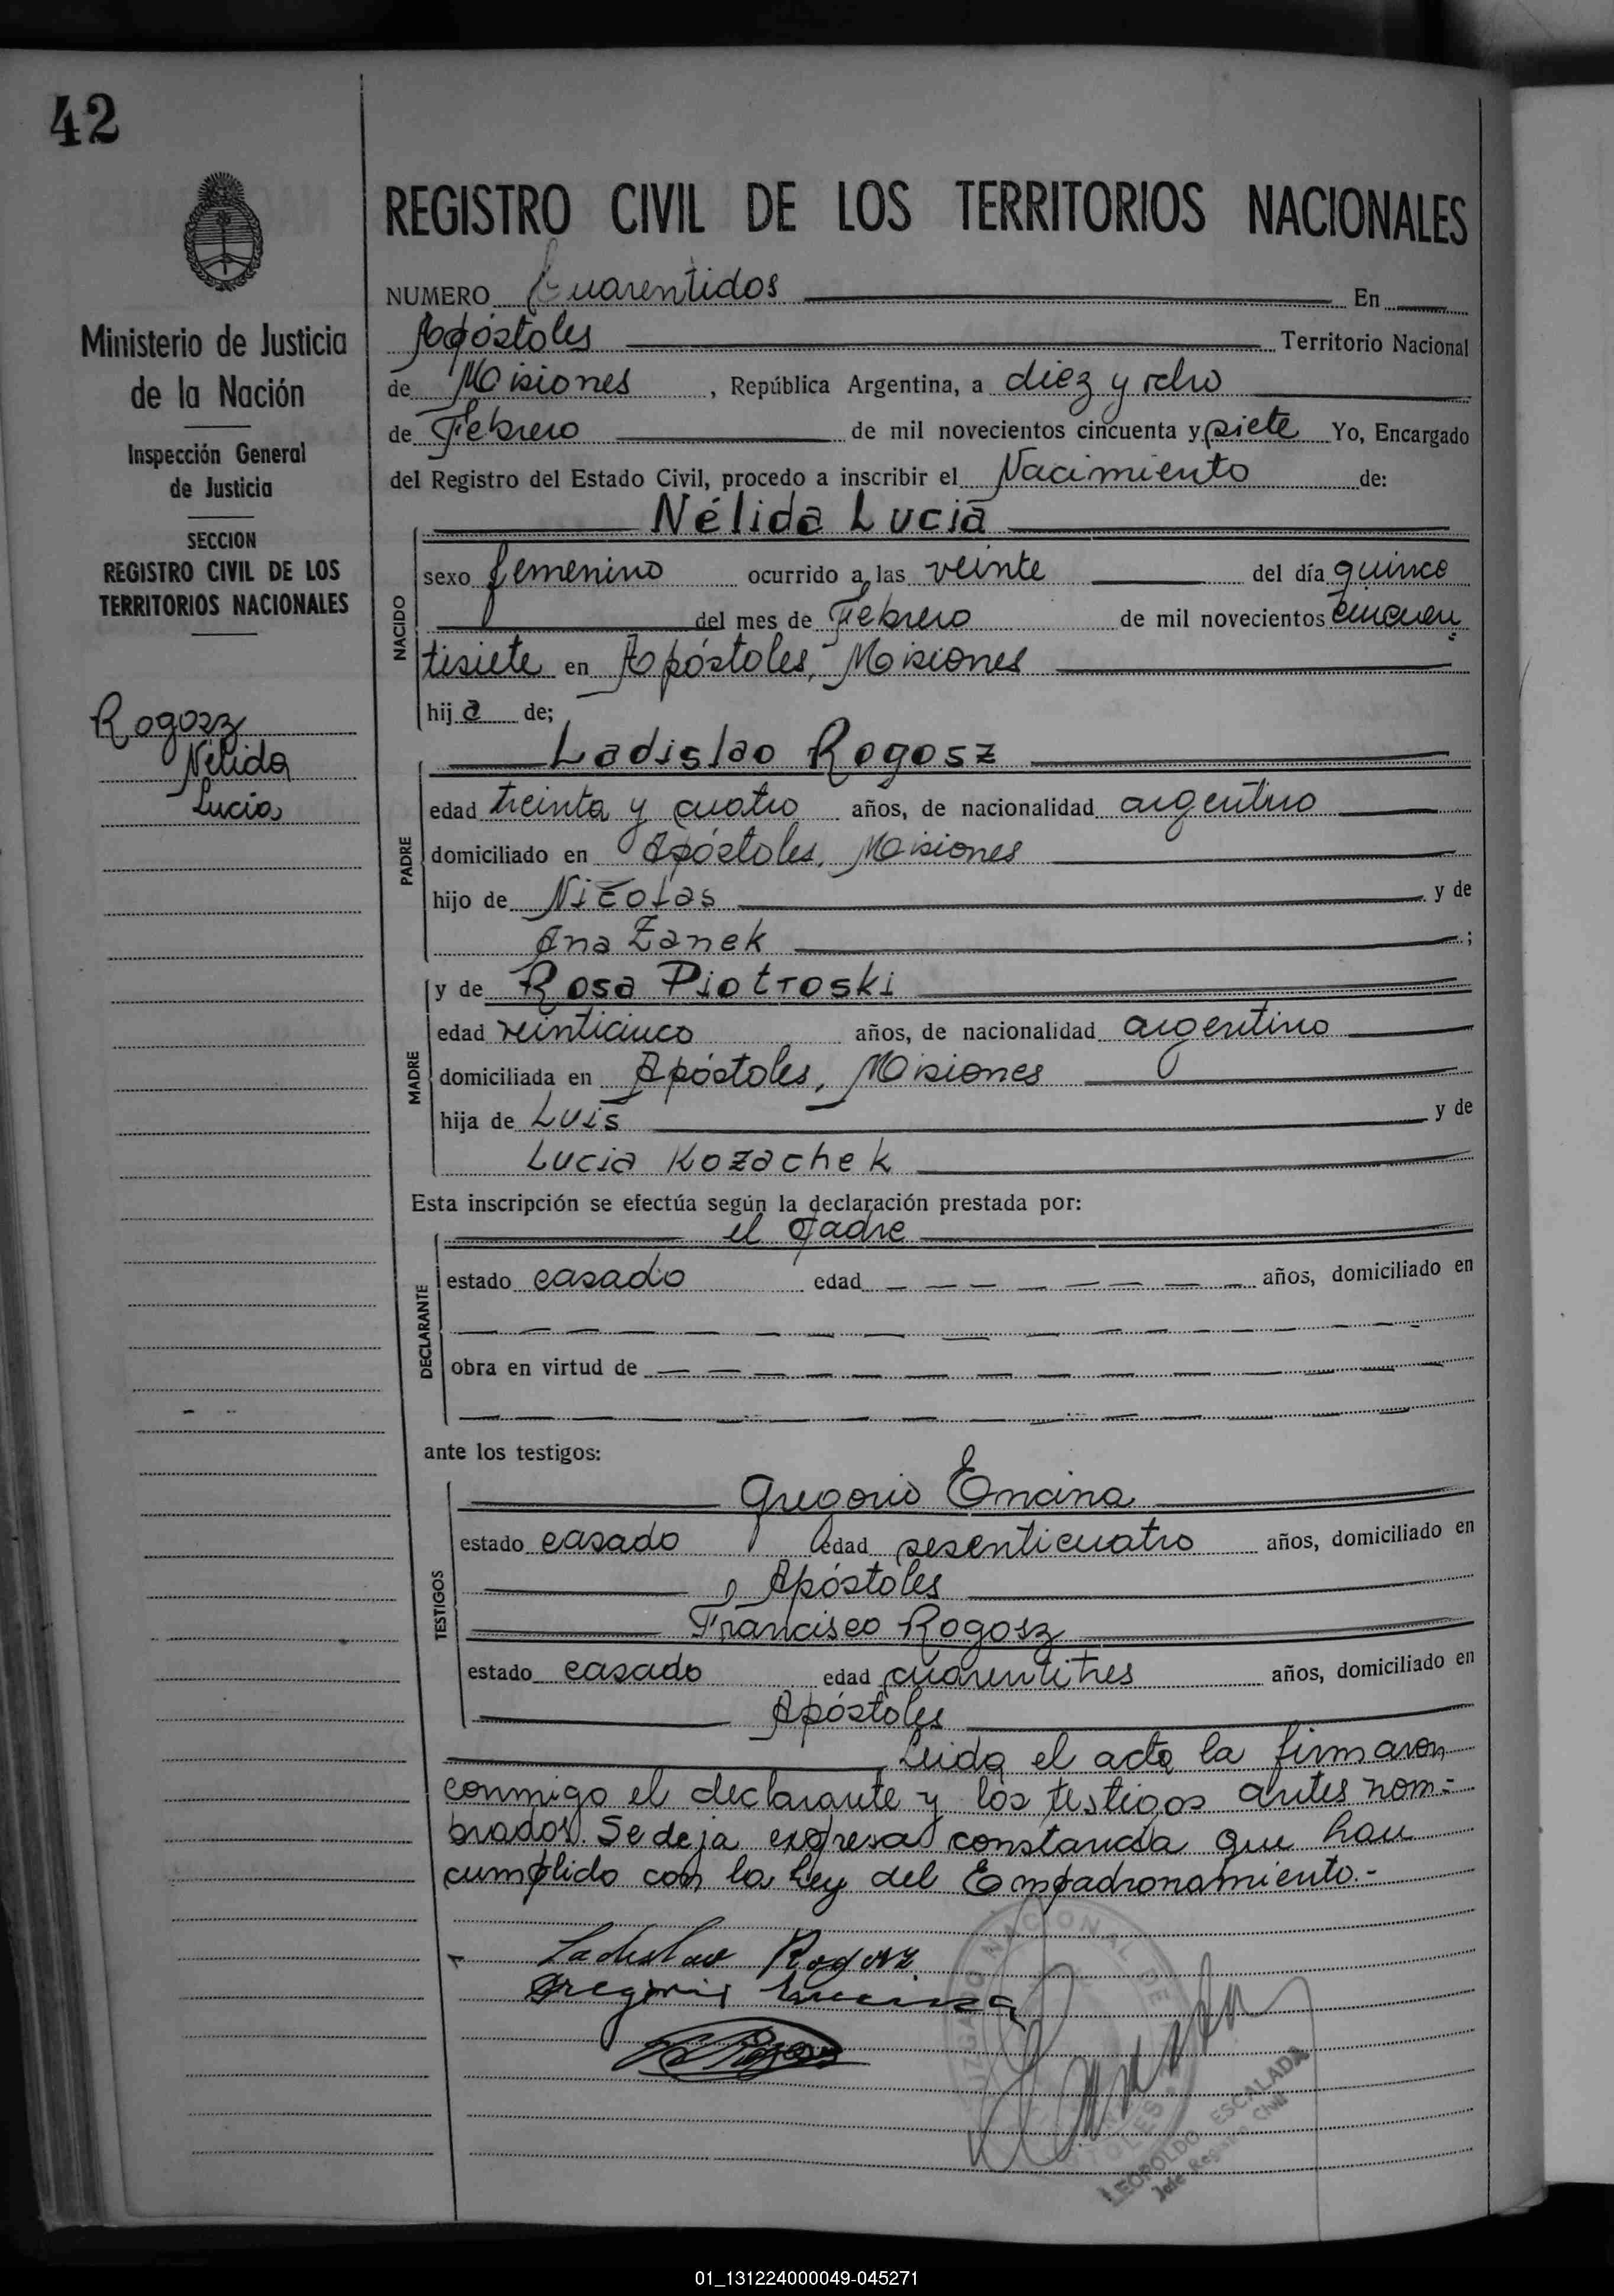 42
REGISTRO CIVIL DE LOS TERRITORIOS NACIONALES
Ministerio de Justicia
de la Nación
Inspección General
de Justicia
SECCION
REGISTRO CIVIL DE LOS
TERRITORIOS NACIONALES
Rogosz
Nélida
Lucia
NUMERO Cuarentidos En
Apóstoles Territorio Nacional
de Misiones, República Argentina, a diez y ocho
de Febrero de mil novecientos cincuenta y siete Yo, Encargado
del Registro del Estado Civil, procedo a inscribir el Nacimiento de:
NACIDO
Nélida Lucia
sexo femenino ocurrido a las veinte del día quince
del mes de Febrero de mil novecientos cincuen
tisiete en Apóstoles, Misiones
hija de;
PADRE
Ladislao Rogosz
edad treinta y cuatro años, de nacionalidad argentino
domiciliado en Apóstoles, Misiones
hijo de Nicolas y de
Ana Zanek ;
MADRE
y de Rosa Piotroski
edad veinticinco años, de nacionalidad argentino
domiciliada en Apóstoles, Misiones
hija de Luis y de
Lucia Kozachek
Esta inscripción se efectúa según la declaración prestada por:
DECLARANTE
el padre
estado casado edad años, domiciliado en
obra en virtud de
ante los testigos:
TESTIGOS
Gregorio Encina
estado casado edad sesenticuatro años, domiciliado en
Apóstoles
Francisco Rogosz
estado casado edad cuarentitres años, domiciliado en
Apóstoles
Leida el acta la firmaron
conmigo el declarante y los testigos antes nom-
brados. Se deja expresa constancia que han
cumplido con la Ley del Empadronamiento.-
Ladislao Rogosz
Gregorio Encina
LEOPOLDO ESCALADA
Jefe Registro Civil
01_131224000049-045271